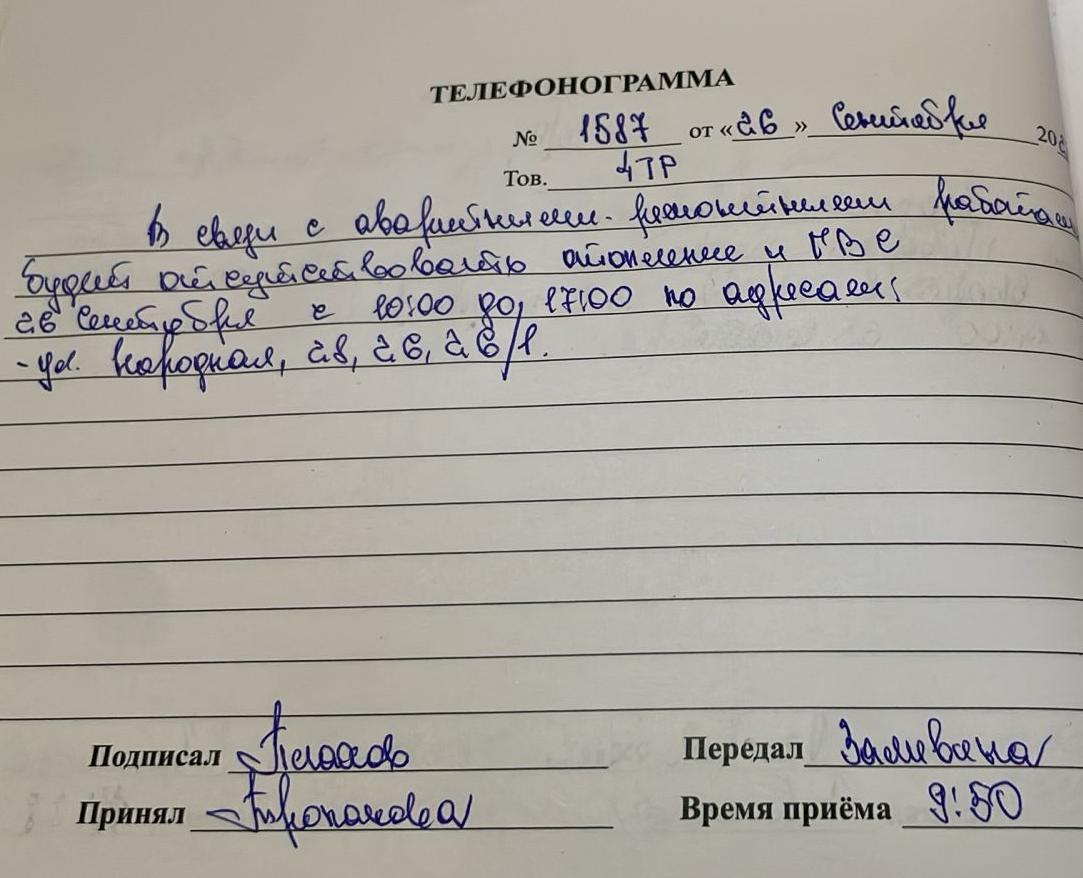 ТЕЛЕФОНОГРАММА
№ 1587 от «26» Сентября 20
Тов. ЦТР
В связи с аварийными-ремонтными работами
будет отсутствовать отопление и ГВС
26 Сентября с 10:00 до 17:00 по адресам:
- ул. Народная, 28, 26, 26/1.
Подписал Передал
Принял Время приёма 9:50